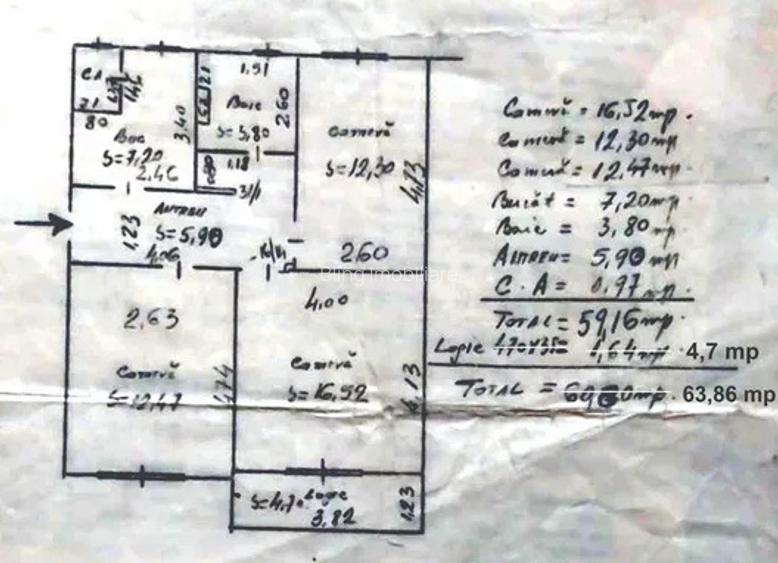 CA
80
Buc
S=7,20
2.46
3,40
1,51
Baie
S=3,80
2,60
1.18
cameră
S=12,30
4,73
2,60
Antreu
S=5,90
1,23
4,06
Bling Imobiliare
2,63
Cameră
S=12,47
4,74
4,00
Cameră
S=16,52
4,13
Logie
S=4,70
3,82
1,23
Cameră = 16,52mp.
Cameră = 12,30mp
Cameră = 12,47mp
Bucăt = 7,20mp.
Baie = 3,80mp.
Antreu = 5,90mp
C.A = 0,97mp.
Total = 59,16mp.
Logie 1,64mp. 4,7 mp
Total = 63,86 mp